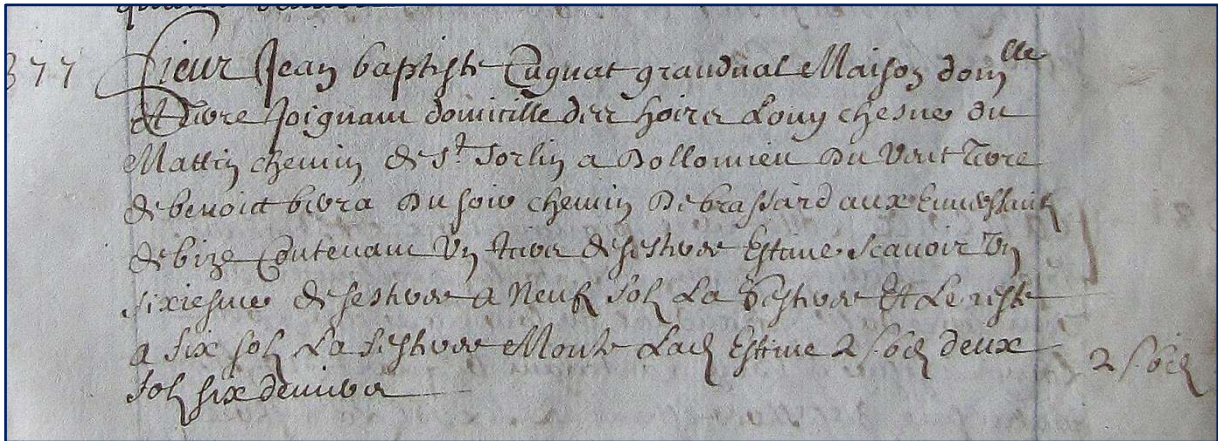 377 Sieur Jean baptiste Cugnat grandval Maison dom^lle
et Terre Joignant domicille des hoirs Louy chesne du
Mattin chemin de s^t Sorlin a Dollomieu Du Vent Terre
de benoict bivra Du soir chemin De brassard aux
de bize Contenant Un tiers de sesteree Estimé Scavoir Un
sixiesme de sesteree a Neuf sols La sesteree Et Le reste
a six sols La sesteree Monte Lad Estime 2 s 6 d deux
sols six deniers
2 s 6 d